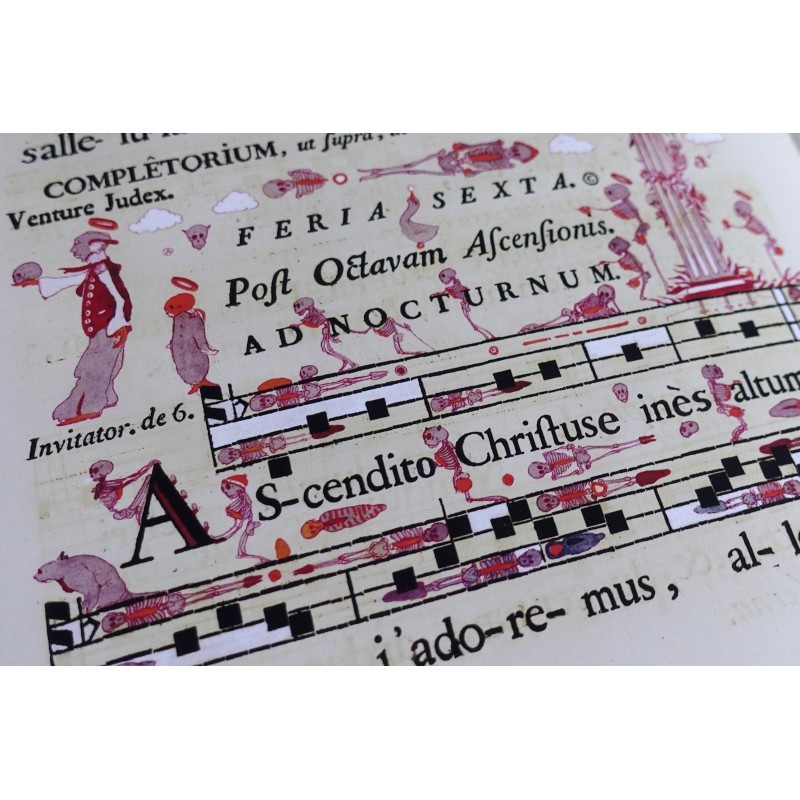 salle-
COMPLÊTORIUM, ut ſupra,
Venture Judex.
FERIA SEXTA.©
Poſt Octavam Aſcenſionis.
AD NOCTURNUM.
Invitator. de 6.
AS-cendito Chriſtuse inès altum
j'ado-re- mus, al-